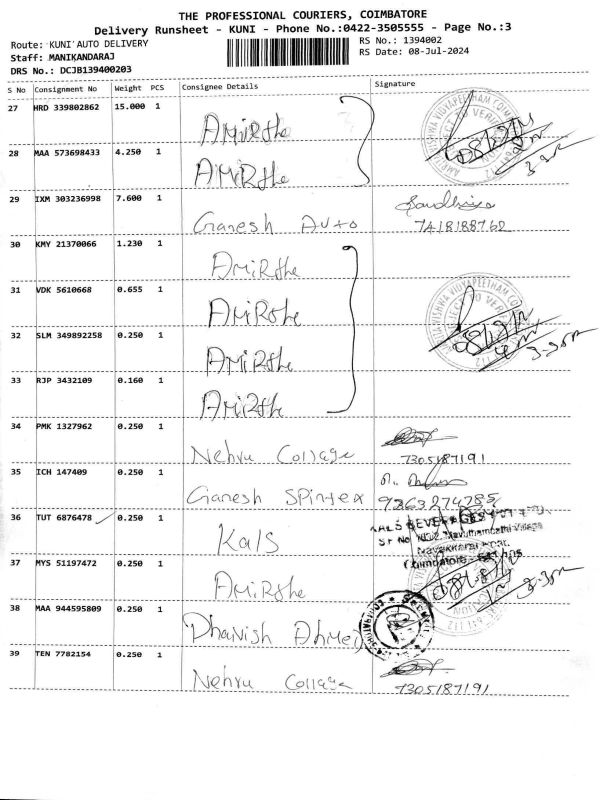 THE PROFESSIONAL COURIERS, COIMBATORE
Delivery Runsheet - KUNI - Phone No.:0422-3505555 - Page No.:3
Route: KUNI AUTO DELIVERY
RS No.: 1394002
Staff: MANIKANDARAJ
RS Date: 08-Jul-2024
DRS No.: DCJB139400203
S No Consignment No Weight PCS Consignee Details Signature
27 HRD 339802862 15.000 1 AMiRthe
28 MAA 573698433 4.250 1 AMiRthe
29 IXM 303236998 7.600 1 Ganesh Auto 7418188762
30 KMY 21370066 1.230 1 AMiRthe
31 VDK 5610668 0.655 1 AMiRthe
32 SLM 349892258 0.250 1 AMiRthe
33 RJP 3432109 0.160 1 AMiRthe
34 PMK 1327962 0.250 1 Nehru Collage 7305187191
35 ICH 147409 0.250 1 Ganesh SPintex 9363274785
36 TUT 6876478 0.250 1 Kals
37 MYS 51197472 0.250 1 AMiRthe
38 MAA 944595809 0.250 1 Dhanish Ahmed
39 TEN 7782154 0.250 1 Nehru Collage 7305187191